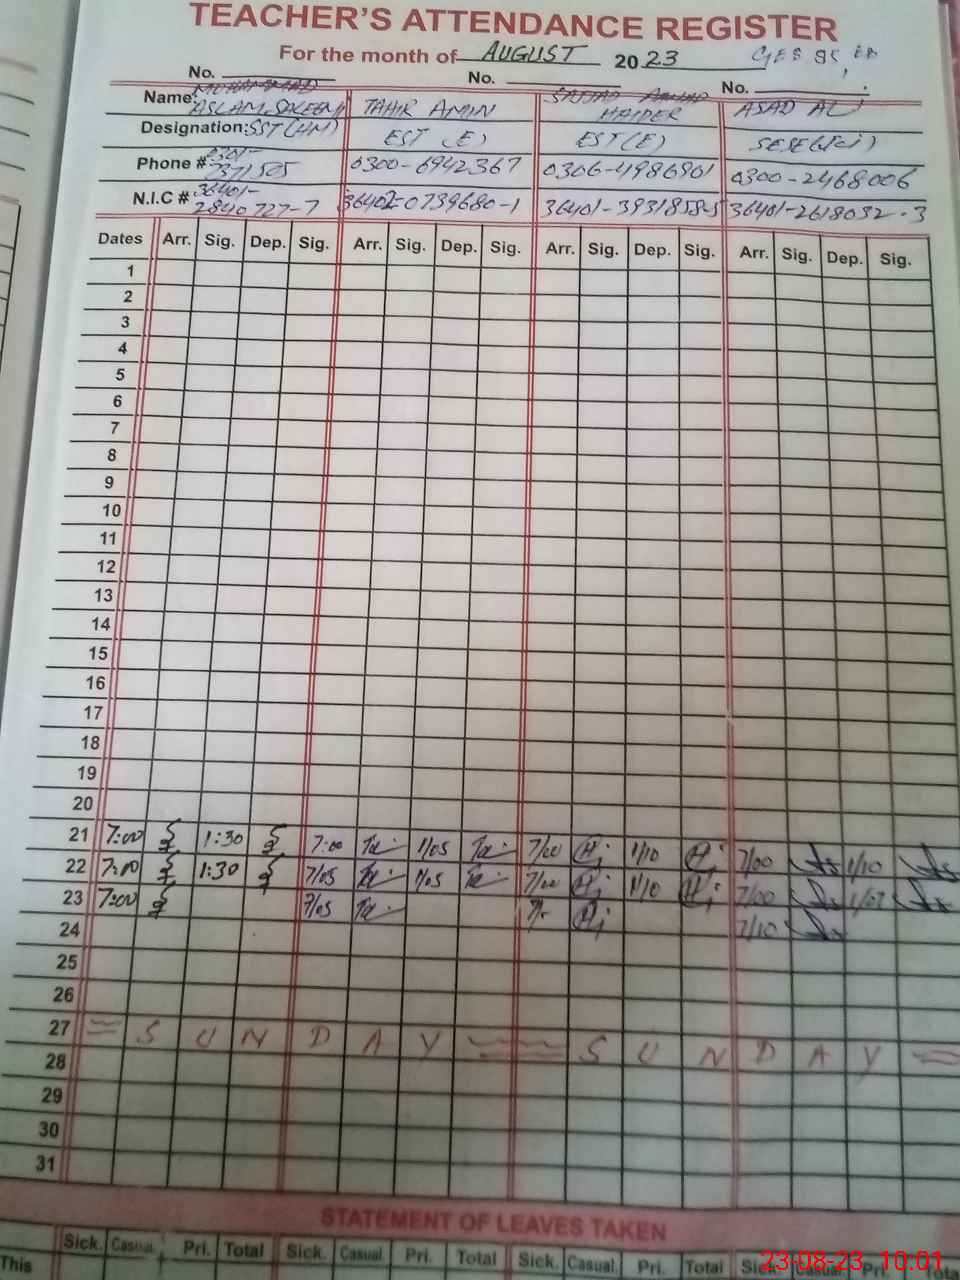 TEACHER'S ATTENDANCE REGISTER
For the month of AUGUST 2023
No. No. No.
Name: ASLAM SALEEMI TAHIR AMIN HAIDER ASAD ALI
Designation: SST(HM) EST (E) EST(E) SESE(Sci)
Phone # 0300-6942367 0306-4986901 0300-2468006
N.I.C # 36401-2840727-7 36402-0739680-1 36401-3931858-5 36401-2618032-3
Dates Arr. Sig. Dep. Sig. Arr. Sig. Dep. Sig. Arr. Sig. Dep. Sig. Arr. Sig. Dep. Sig.
1
2
3
4
5
6
7
8
9
10
11
12
13
14
15
16
17
18
19
20
21 7:00 1:30 7:00 1/05 7/00 1/10 7/00 1/10
22 7:00 1:30 7/05 1/05 7/00 1/10 7/00
23 7:00 7/05 7/10
24
25
26
27 SUNDAY SUNDAY
28
29
30
31
STATEMENT OF LEAVES TAKEN
Sick. Casual. Pri. Total Sick. Casual. Pri. Total Sick. Casual. Pri. Total Sick. Casual. Pri.
This
23-08-23 10:01